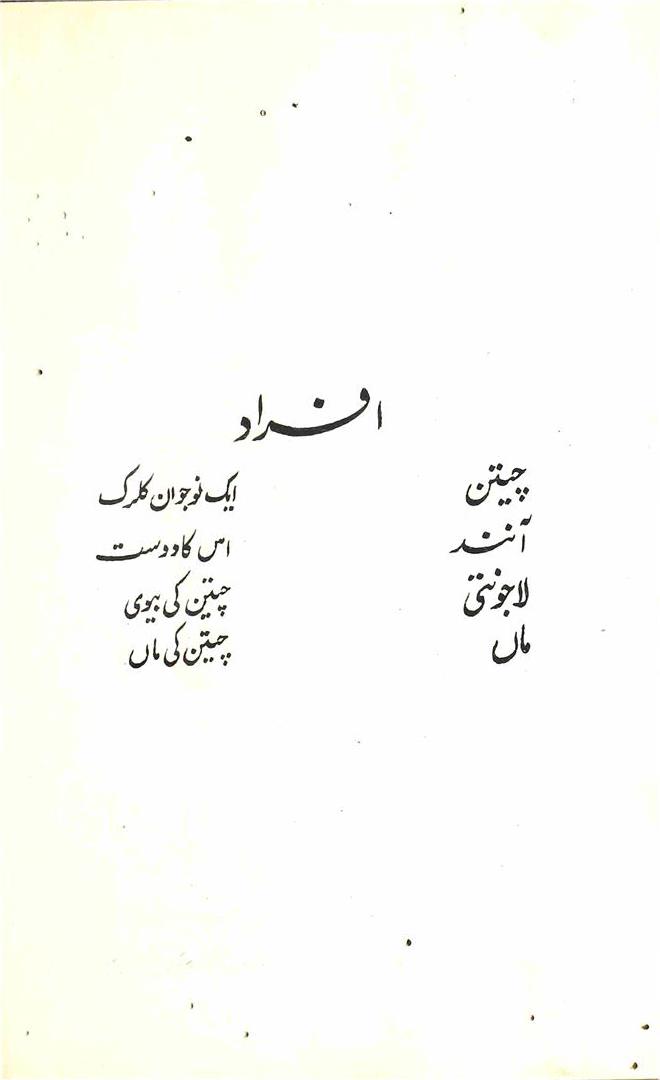 افراد
چیتن ایک نوجوان کلرک
آنند اس کا دوست
لاجونتی چیتن کی بیوی
ماں چیتن کی ماں